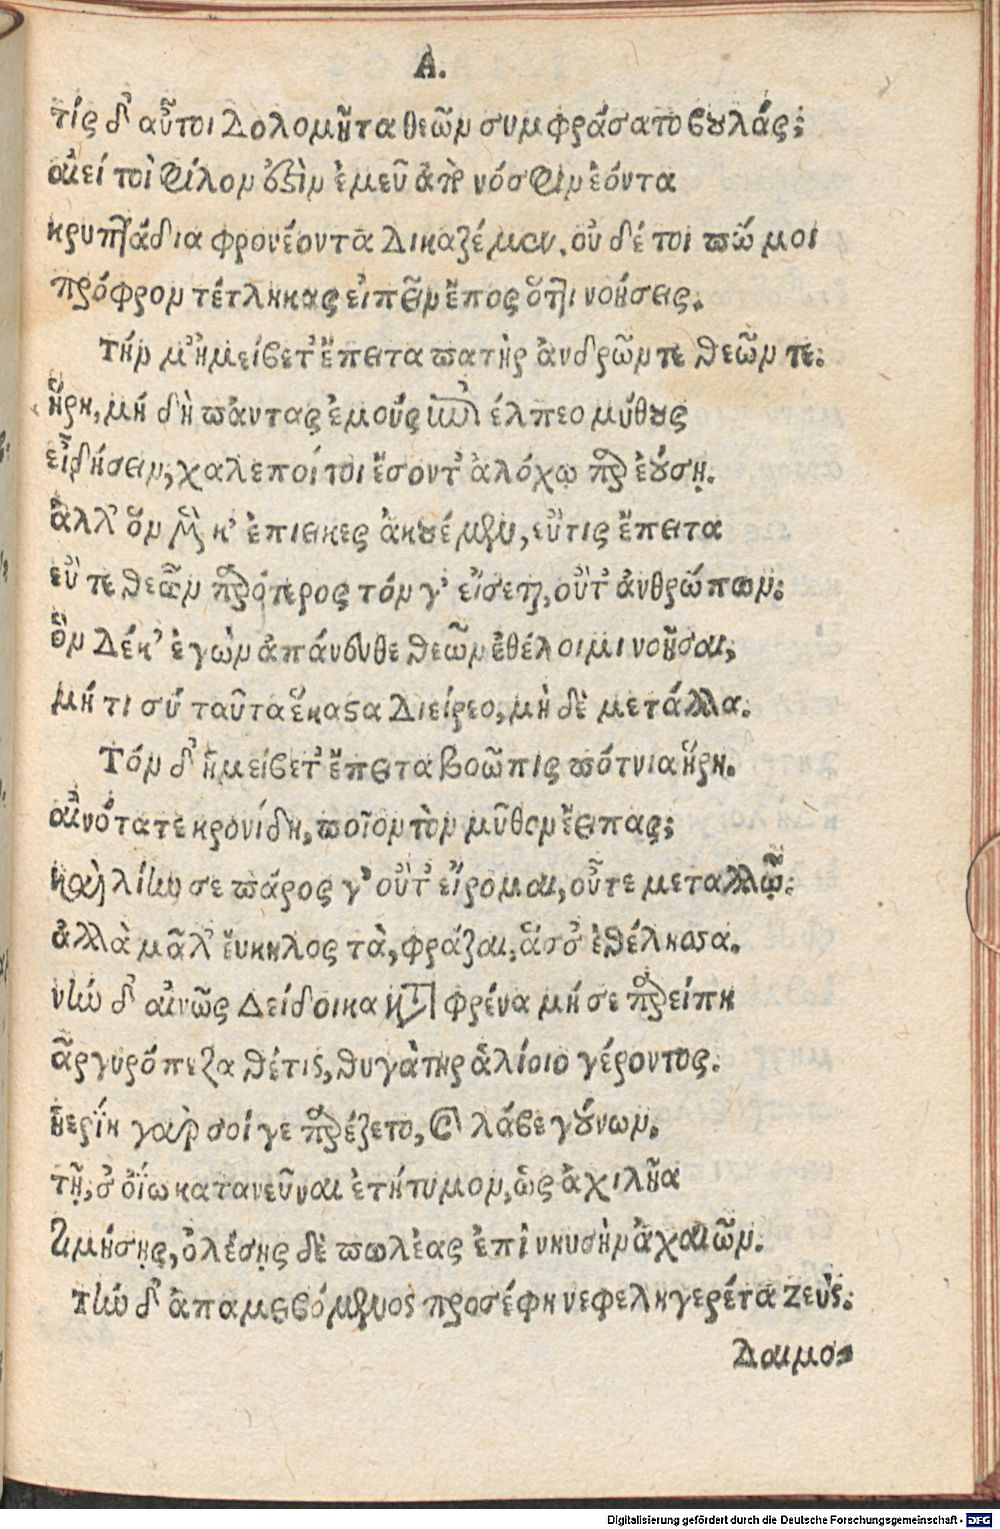 Α.
τίς δ' αὖ τοι δολομῆτα θεῶν συμφράσατο βουλάς;
αἰεί τοι φίλον ἐστὶν ἐμεῦ ἀπὸ νόσφιν ἐόντα
κρυπτάδια φρονέοντα δικαζέμεν. οὐ δέ τοι πώ μοι
πρόφρον τέτληκας εἰπεῖν ἔπος ὅττι νοήσεις.
Τὴν μ' ἠμείβετ' ἔπειτα πατὴρ ἀνδρῶν τε θεῶν τε:
ἥρη, μὴ δὴ πάντας ἐμοὺς ἐπιέλπεο μύθους
εἰδήσειν, χαλεποί τοι ἔσοντ' ἀλόχῳ περ ἐούσῃ.
ἀλλ' ὃν μέν κ' ἐπιεικὲς ἀκουέμεν, οὔτις ἔπειτα
οὔτε θεῶν πρότερος τόν γ' εἴσεται, οὔτ' ἀνθρώπων:
ὃν δέ κ' ἐγὼν ἀπάνευθε θεῶν ἐθέλοιμι νοῆσαι,
μή τι σύ ταῦτα ἕκαστα διείρεο, μὴ δὲ μετάλλα.
Τὸν δ' ἠμείβετ' ἔπειτα βοῶπις πότνια ἥρη.
αἰνότατε κρονίδη, ποῖον τὸν μῦθον ἔειπας;
καὶ λίην σε πάρος γ' οὔτ' εἴρομαι, οὔτε μεταλλῶ:
ἀλλὰ μάλ' εὔκηλος τὰ, φράζαι, ἅσσ' ἐθέλησθα.
νῦν δ' αἰνῶς δείδοικα κατὰ φρένα μή σε παρείπη
ἀργυρόπεζα θέτις, θυγάτηρ ἁλίοιο γέροντος.
ἠερίη γὰρ σοί γε παρέζετο, καὶ λάβε γούνων.
τῇ, σ' ὀΐω κατανεῦναι ἐτήτυμον, ὡς ἀχιλῆα
τιμήσῃς, ὀλέσῃς δὲ πολέας ἐπὶ νηυσὴν ἀχαιῶν.
Τὴν δ' ἀπαμειβόμενος προσέφη νεφεληγερέτα ζεύς:
Δαιμο-
Digitalisierung gefördert durch die Deutsche Forschungsgemeinschaft - DFG